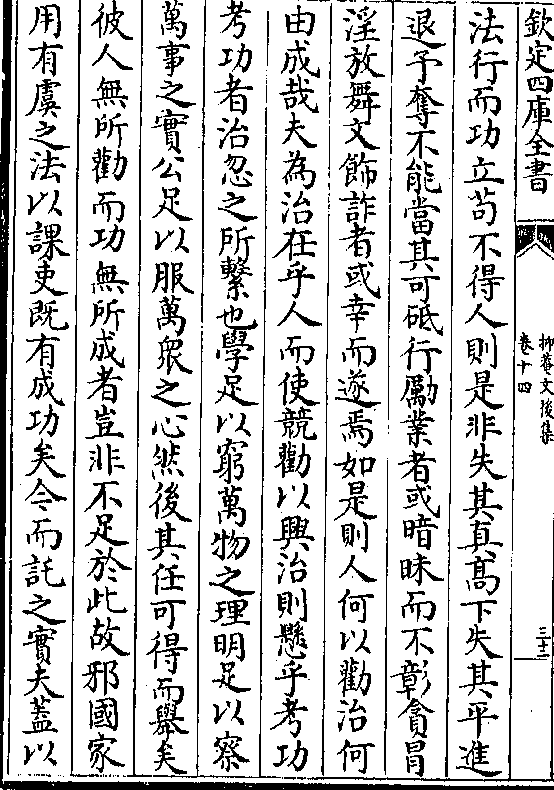 欽定四庫全書
抑菴文後集
卷十四
三十二
法行而功立苟不得人則是非失其真髙下失其平進
退予奪不能當其可砥行勵業者或暗昧而不彰貪冒
淫放舞文飾詐者或幸而遂焉如是則人何以勸治何
由成哉夫為治在乎人而使競勸以興治則懸乎考功
考功者治忽之所繫也學足以窮萬物之理明足以察
萬事之實公足以服萬衆之心然後其任可得而舉矣
彼人無所勸而功無所成者豈非不足於此故邪國家
用有虞之法以課吏既有成功矣今而託之實夫蓋以